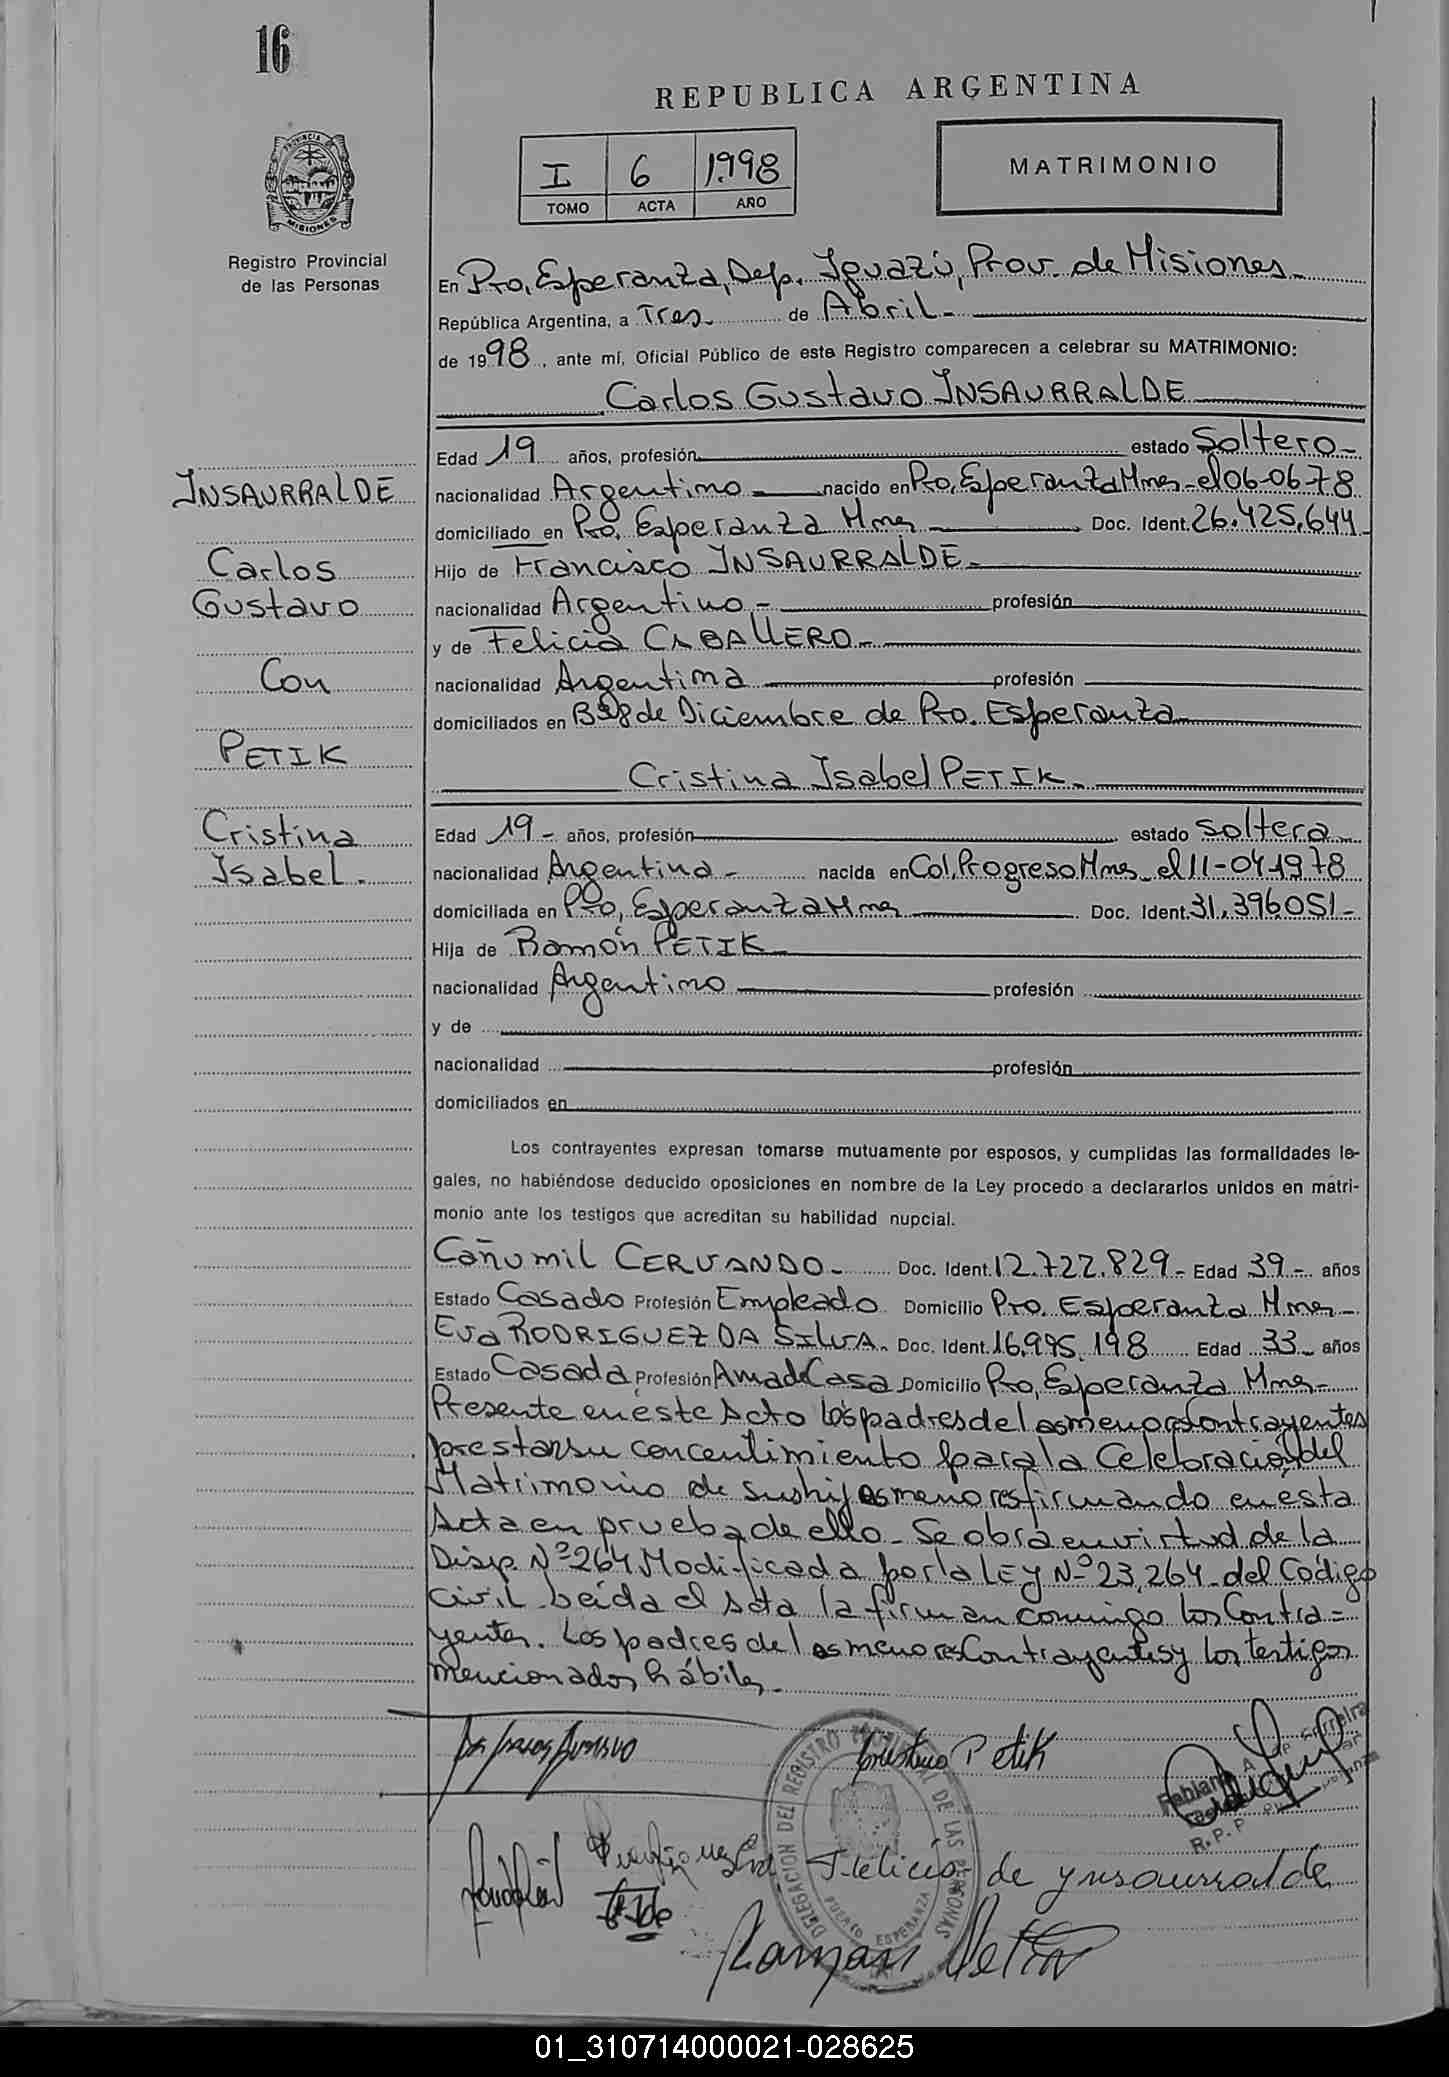 16
REPUBLICA ARGENTINA
I 6 1.998
TOMO ACTA AÑO
MATRIMONIO
PROVINCIA DE MISIONES
Registro Provincial
de las Personas
En Pto, Esperanza, Dep. Iguazú, Prov. de Misiones
República Argentina, a Tres de Abril
de 1998, ante mí, Oficial Público de este Registro comparecen a celebrar su MATRIMONIO:
Carlos Gustavo INSAURRALDE
Edad 19 años, profesión estado Soltero
nacionalidad Argentino nacido en Pto, Esperanza Mnes el 06-06-78
domiciliado en Pto, Esperanza Mnes Doc. Ident. 26.425.644
Hijo de Francisco INSAURRALDE
nacionalidad Argentino profesión
y de Felicia CABALLERO
nacionalidad Argentina profesión
domiciliados en Bº 8 de Diciembre de Pto. Esperanza
Cristina Isabel PETIK
Edad 19 años, profesión estado soltera
nacionalidad Argentina nacida en Col, Progreso Mnes el 11-04-1978
domiciliada en Pto, Esperanza Mnes Doc. Ident. 31.396.051
Hija de Ramón PETIK
nacionalidad Argentino profesión
y de
nacionalidad profesión
domiciliados en
INSAURRALDE
Carlos
Gustavo
Con
PETIK
Cristina
Isabel.
Los contrayentes expresan tomarse mutuamente por esposos, y cumplidas las formalidades le-
gales, no habiéndose deducido oposiciones en nombre de la Ley procedo a declararlos unidos en matri-
monio ante los testigos que acreditan su habilidad nupcial.
Cañumil CERVANDO Doc. Ident. 12.722.829 Edad 39 años
Estado Casado Profesión Empleado Domicilio Pto. Esperanza Mnes
Eva RODRIGUEZ DA SILVA Doc. Ident. 16.995.198 Edad 33 años
Estado Casada Profesión Ama de Casa Domicilio Pto, Esperanza Mnes
Presente en este Acto los padres de los menores contrayentes
prestan su concentimiento para la Celebración del
Matrimonio de sus hijos menores firmando en esta
Acta en prueba de ello. Se obra en virtud de la
Disp. Nº 264 Modificada por la LEY Nº 23,264 del Código
Civil. Leída el Acta la firman conmigo los Contra=
yentes. Los padres de los menores Contrayentes y los testigos
mencionados hábiles
Cristina Petik
DELEGACION DEL REGISTRO PROVINCIAL DE LAS PERSONAS
PUERTO ESPERANZA
Rodriguez Eva
Felicia de ynsaurralde
Raman Petik
01_310714000021-028625